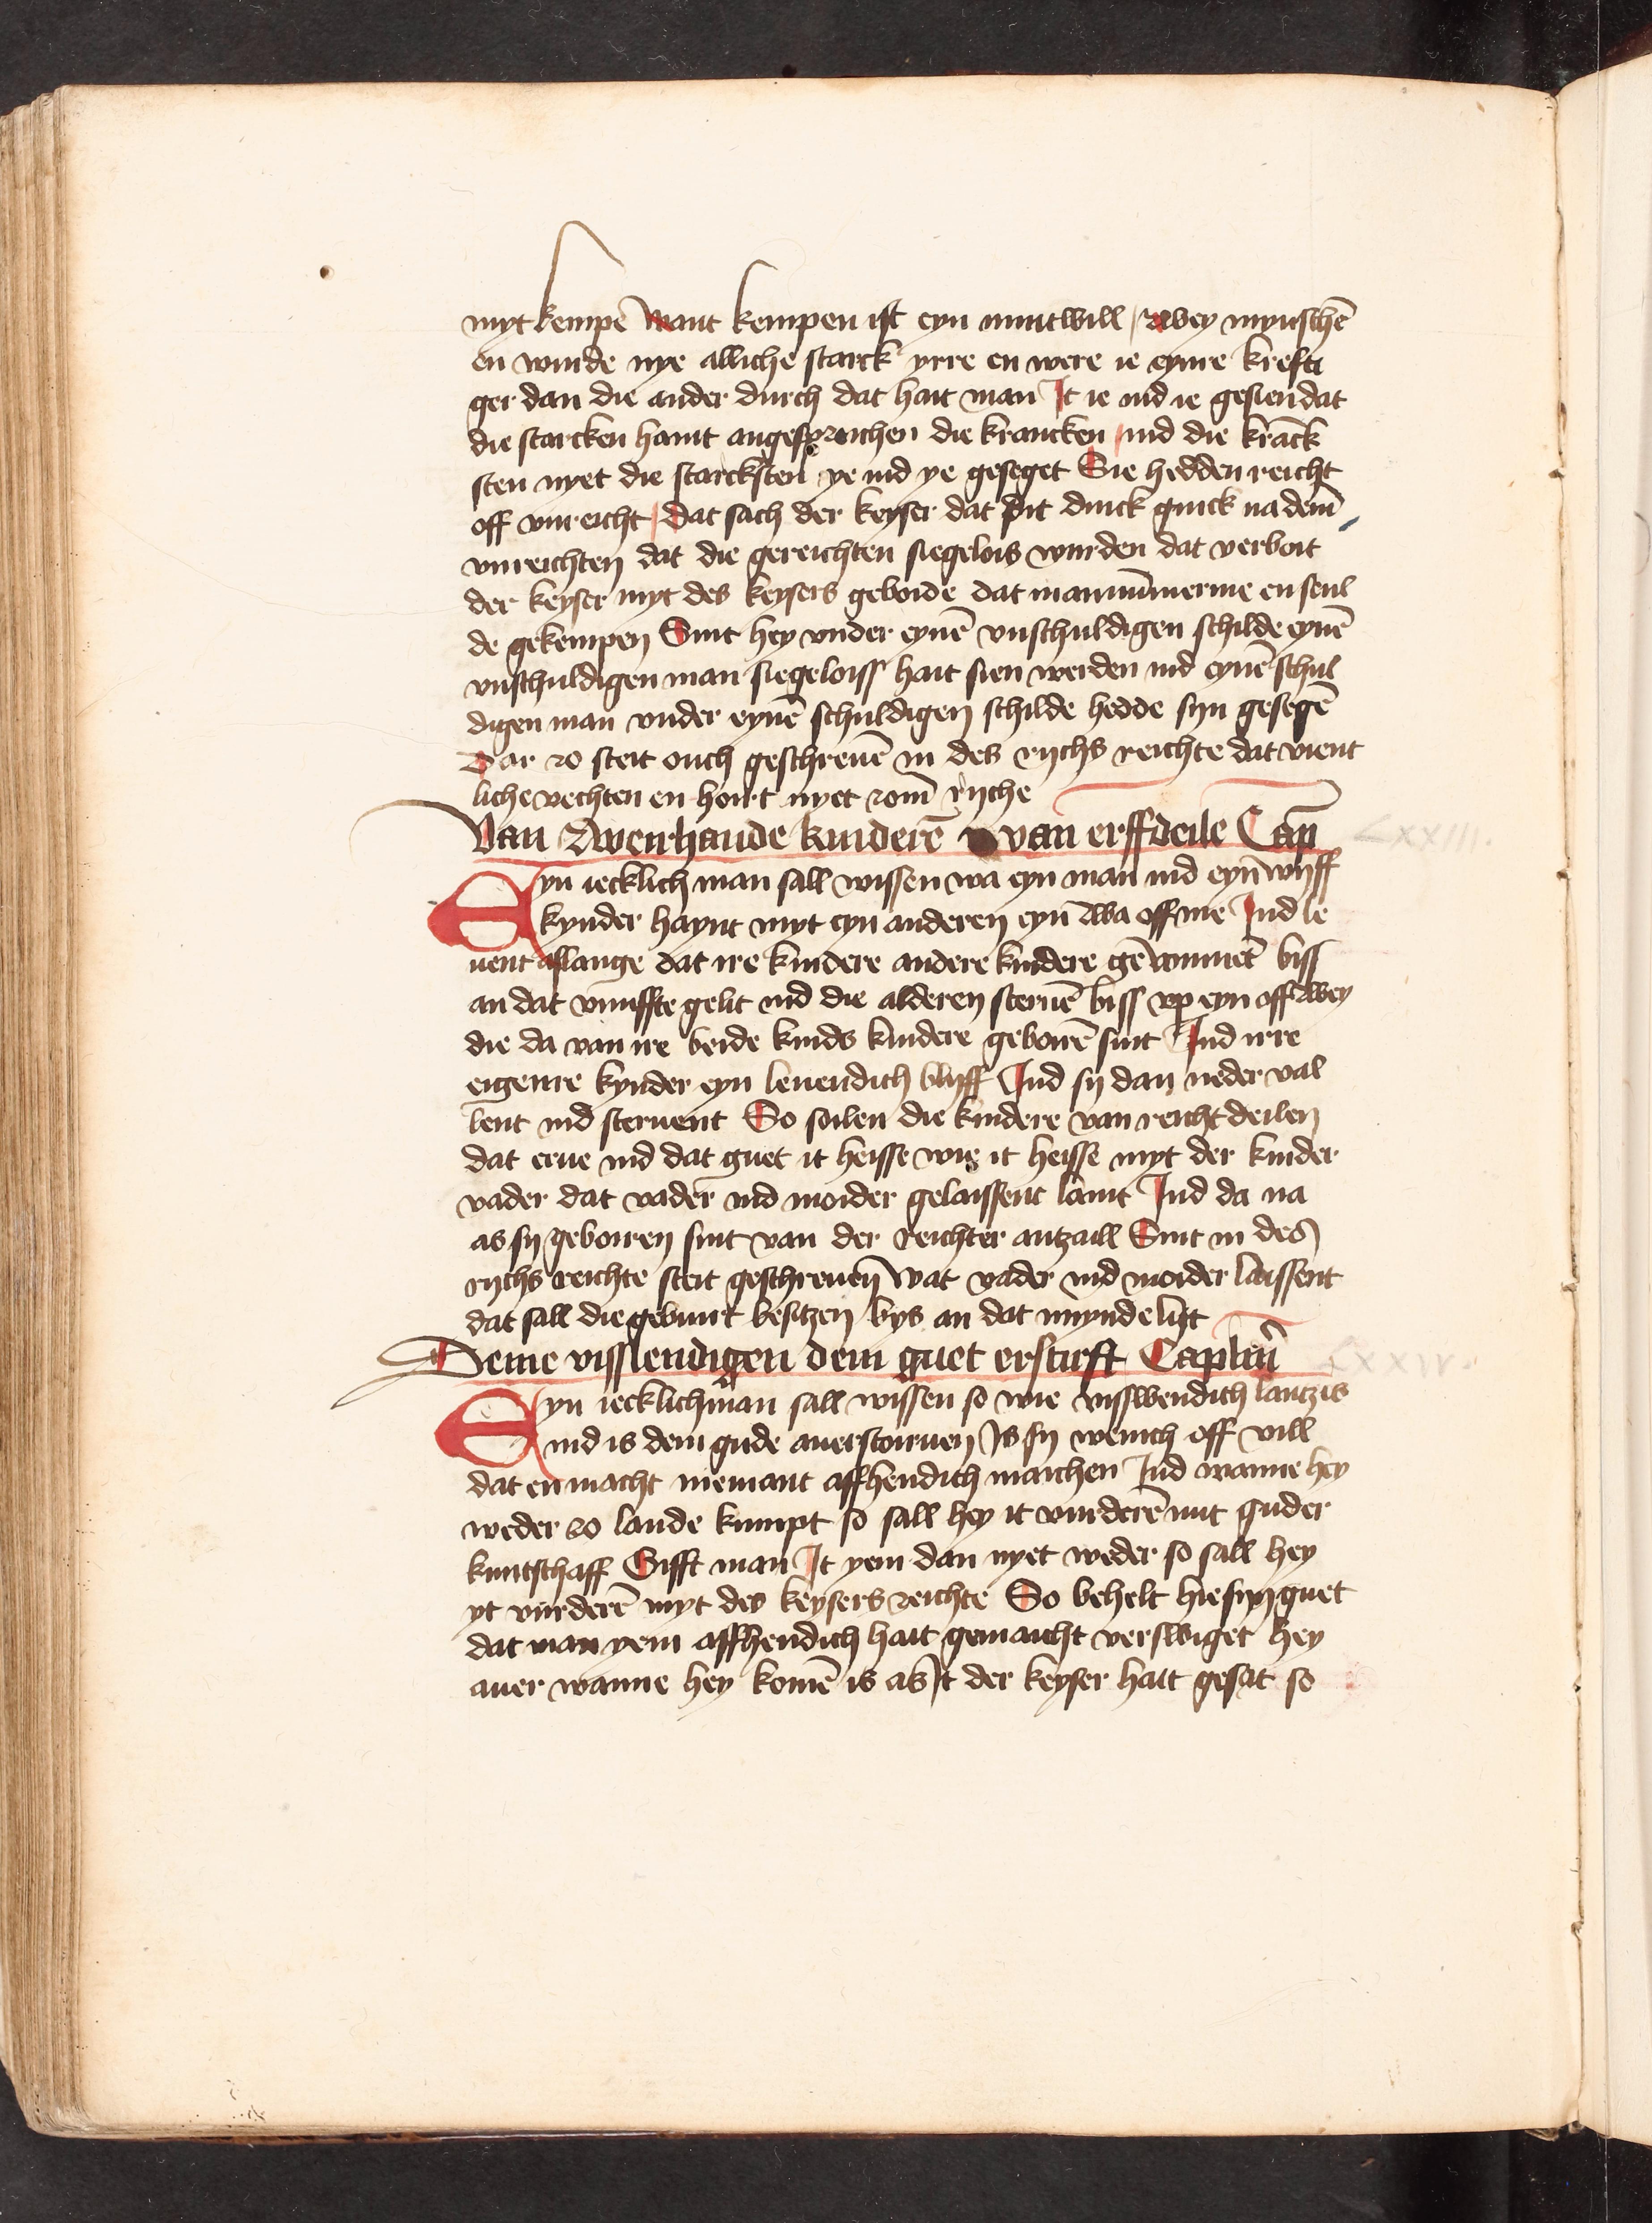 myt kempē want kempen ist eyn muitwill / zwey mynschē
en wurde nye alliche starck yrre en were ie eynre krefti
ger dan die ander durch dat hait man It ie ind ie gesien dat
die starcken haint angesprochen die krancken ind die kranck
sten nyet die starcksten ye ind ye geseget Sie hedden reicht
off vnreicht / Dat sach der keyser dat dit dinck ginck na dem
vnreichten dat die gereichten siegelois wurden dat verboit
der keyser myt des keysers geboide dat man nūmerme en seul
de gekempen Sint hey vnder eynē vnschuldigen schilde eynē
vnschuldigen man siegeloiss hait sien werden ind eynē schul
digen man vnder eynē schuldigen schilde hedde syn gesegē
Dar zo steit ouch geschreuē in des rychs reichte dat vient
liche vechten en hoirt nyet zom ryche
Van zweirhande kinderē van erffdeile Cap̄
LXXIII.
Eyn iecklich man sall wissen wa eyn man ind eyn wyff
kynder haynt myt eyn anderen eyn zwa off me Ind le
uent aslange dat ire kindere andere kindere gewinnēt biss
an dat vunffte gelit ind die alderen steruē biss vp eyn off zwey
die da van ire beide kinds kindere geboirē sint Ind irre
eigenre kynder eyn leuendich blyff Ind sy dan neder val
lent ind steruent So soilen die kindere van reicht deilen
dat erue ind dat guet it heisse wie it heisse myt der kinder
vader dat vader ind moider gelaissent haint Ind da na
as sy geboiren sint van der reichter antzaill Sint in des
rychs reichte steit geschreuen wat vader ind moider laissent
dat sall die geburt besitzen bys an dat mynde lijt
Deme visslendigen dem guet ersturft Caplm̄
LXXIV.
Eyn iecklich man sall wissen so wie visswendich lantz is
ind is dem gude auerstoruen Is sy wenich off vill
dat en macht niemant affhendich maichen Ind wanne hey
weder zo lande kumpt so sall hey it vurderē mit guder
kuntschaff Gifft man It yem dan nyet weder so sall hey
yt vurderē myt des keysers reichte So behelt hie syn guet
dat man yem affhendich hait gemaicht verswiget hey
auer wanne hey komē is as It der keyser hait gesat so